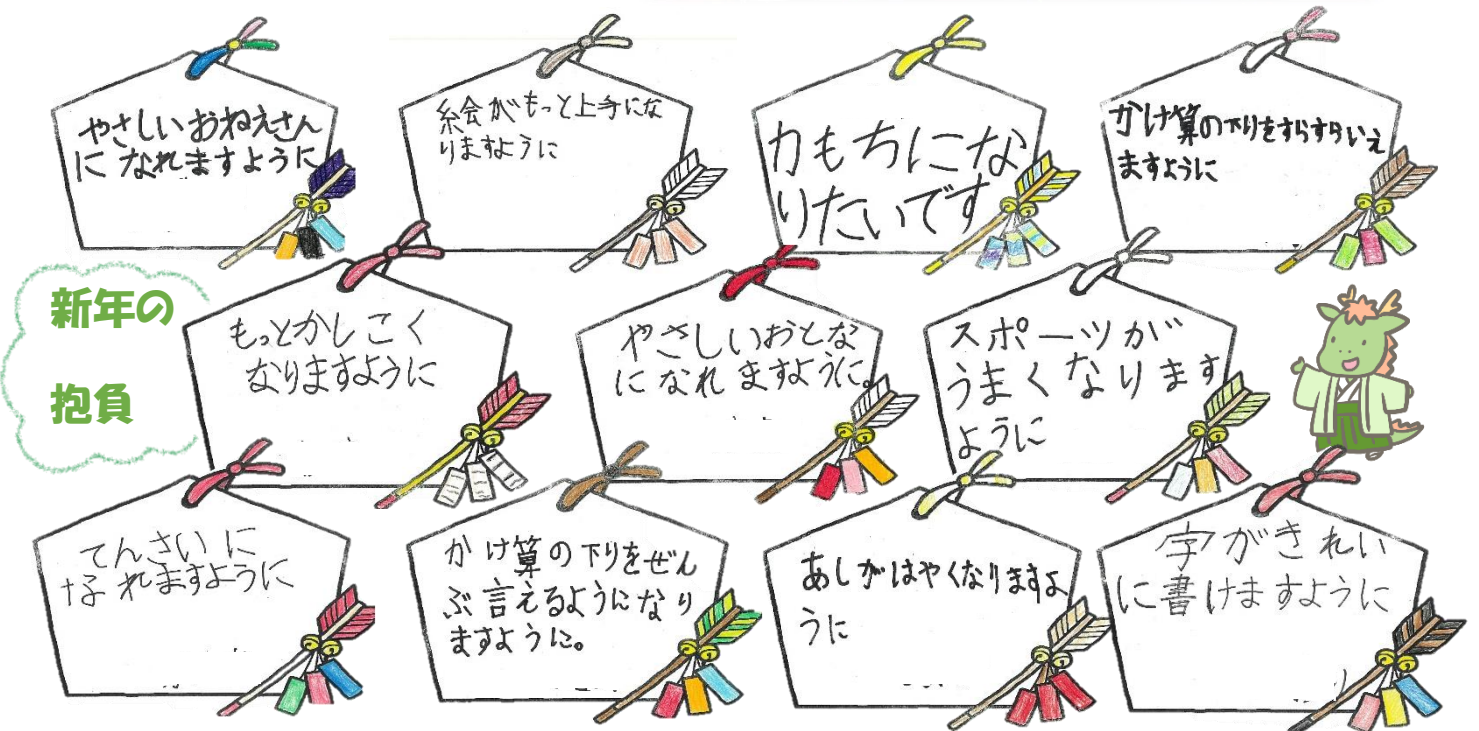 やさしいおねえさん
になれますように
絵がもっと上手にな
りますように
力もちにな
りたいです
かけ算の下りをすらすらいえ
ますように
新年の
抱負
もっとかしこく
なりますように
やさしいおとな
になれますように。
スポーツが
うまくなります
ように
てんさいに
なれますように
かけ算の下りをぜん
ぶ言えるようになり
ますように。
あしがはやくなりますよ
うに
字がきれい
に書けますように